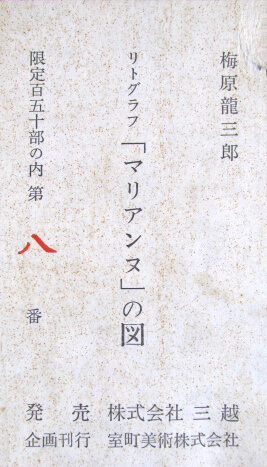 梅原龍三郎
リトグラフ「マリアンヌ」の図
限定百五十部の内 第八番
発売 株式会社 三越
企画刊行 室町美術株式会社